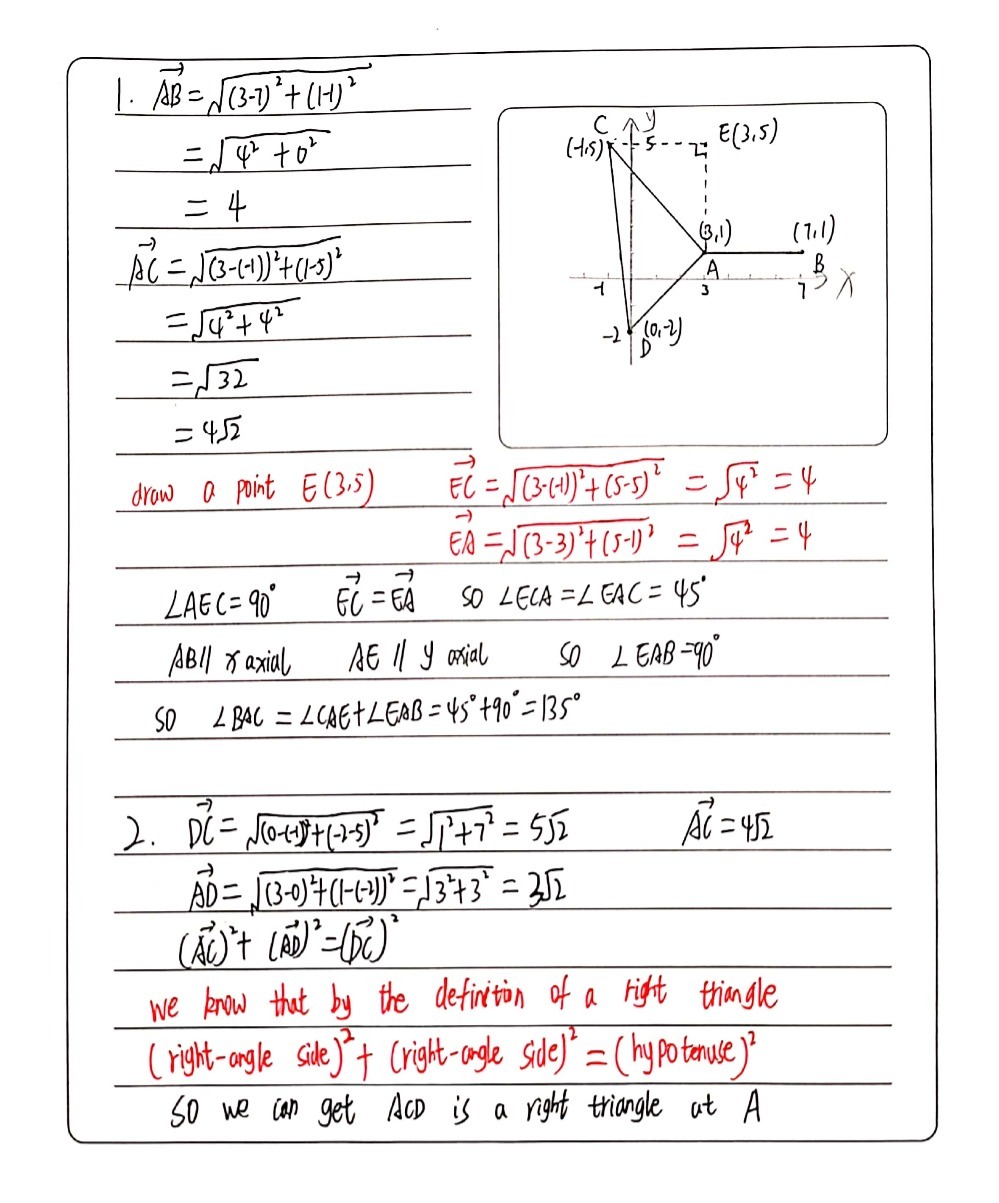 1. $\overrightarrow{AB} = \sqrt{(3-7)^2+(1-1)^2}$
$= \sqrt{4^2+0^2}$
$= 4$
$\overrightarrow{AC} = \sqrt{(3-(-1))^2+(1-5)^2}$
$= \sqrt{4^2+4^2}$
$= \sqrt{32}$
$= 4\sqrt{2}$
C y
(-1,5) 5 E(3,5)
(3,1) (7,1)
A B
-1 3 7 X
-2 (0,-2)
D
draw a point E(3,5) $\overrightarrow{EC} = \sqrt{(3-(-1))^2+(5-5)^2} = \sqrt{4^2} = 4$
$\overrightarrow{EA} = \sqrt{(3-3)^2+(5-1)^2} = \sqrt{4^2} = 4$
∠AEC=90° $\overrightarrow{EC} = \overrightarrow{EA}$ so ∠ECA=∠EAC=45°
AB// x axial AE // y axial so ∠EAB=90°
so ∠BAC = ∠CAE+∠EAB=45°+90°=135°
2. $\overrightarrow{DC} = \sqrt{(0-(-1))^2+(-2-5)^2} = \sqrt{1^2+7^2} = 5\sqrt{2}$ $\overrightarrow{AC} = 4\sqrt{2}$
$\overrightarrow{AD} = \sqrt{(3-0)^2+(1-(-2))^2} = \sqrt{3^2+3^2} = 3\sqrt{2}$
$(\overrightarrow{AC})^2+(\overrightarrow{AD})^2=(\overrightarrow{DC})^2$
we know that by the definition of a right triangle
(right-angle side)² + (right-angle side)² = (hypotenuse)²
so we can get ACD is a right triangle at A